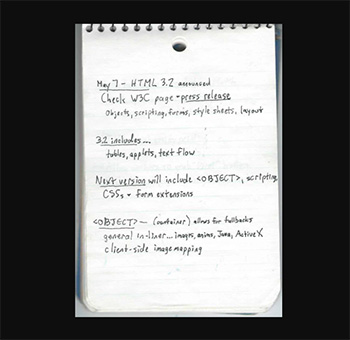 May 7 - HTML 3.2 announced
Check W3C page - press release
Objects, scripting, forms, style sheets, layout
3.2 includes...
tables, applets, text flow
Next version will include <OBJECT>, scripting
CSSs + form extensions
<OBJECT> - (container) allows for fallbacks
general in-liner... images, anims, Java, ActiveX
client-side imagemapping